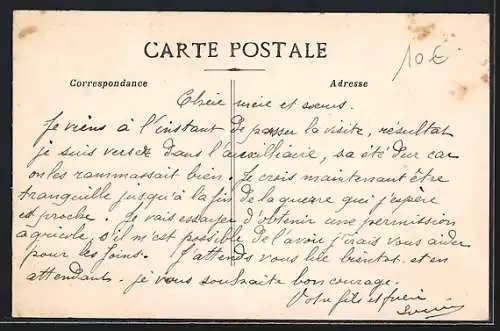 CARTE POSTALE
10€
Correspondance
Adresse
Chère mère et sœurs.
Je viens à l'instant de passer la visite, résultat
je suis versez dans l'auxilliaire, sa été dur car
on les rammassait bien. Je crois maintenant être
tranquille jusqu'à la fin de la guerre qui j'espère
est proche. Je vais essayer d'obtenir une permission
agricole, s'il m'est possible de l'avoir j'irais vous aider
pour les foins. J'attends vous lire bientot et en
attendant je vous souhaite bon courage.
Votre fils et frère